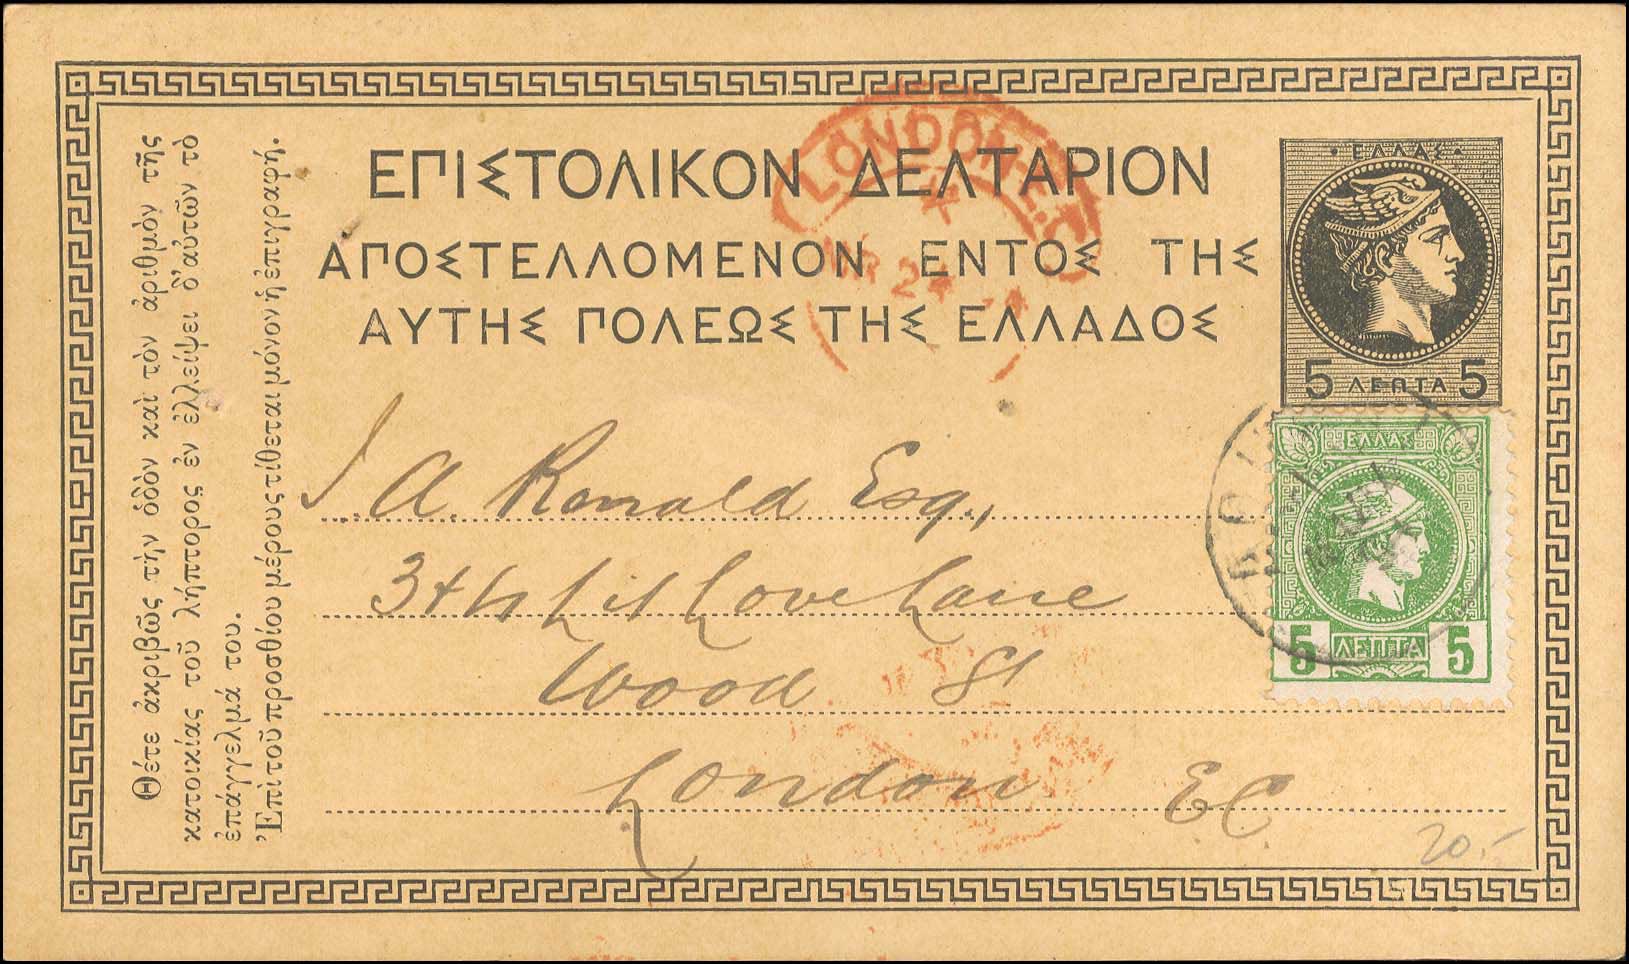 ΕΠΙΣΤΟΛΙΚΟΝ ΔΕΛΤΑΡΙΟΝ
ΑΠΟΣΤΕΛΛΟΜΕΝΟΝ ΕΝΤΟΣ ΤΗΣ
ΑΥΤΗΣ ΠΟΛΕΩΣ ΤΗΣ ΕΛΛΑΔΟΣ
Θέτε ἀκριβῶς τὴν ὁδὸν καὶ τὸν ἀριθμὸν τῆς
κατοικίας τοῦ λήπτορος ἐν ἐλλείψει δ'αὐτῶν τὸ
ἐπάγγελμά του.
Ἐπὶ τοῦ προσθίου μέρους τίθεται μόνον ἡ ἐπιγραφή.
ΕΛΛΑΣ
5 ΛΕΠΤΑ 5
ΕΛΛΑΣ
5 ΛΕΠΤΑ 5
LONDON E.C
24
J. A. Ronald Esq.,
Love Lane
Wood St
London EC
20.-